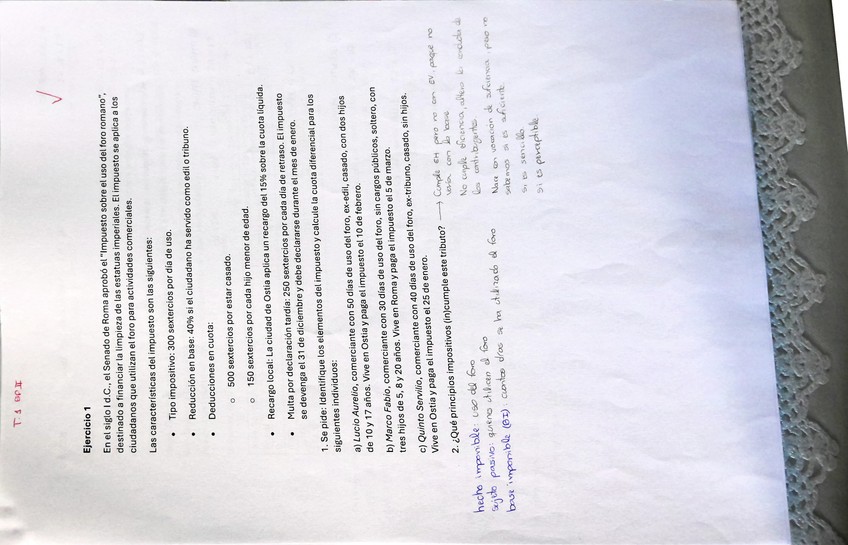 T.1 BP II
Ejercicio 1
En el siglo I d.C., el Senado de Roma aprobó el "Impuesto sobre el uso del foro romano",
destinado a financiar la limpieza de las estatuas imperiales. El impuesto se aplica a los
ciudadanos que utilizan el foro para actividades comerciales.
Las características del impuesto son las siguientes:
• Tipo impositivo: 300 sestercios por día de uso.
• Reducción en base: 40% si el ciudadano ha servido como edil o tribuno.
• Deducciones en cuota:
o 500 sestercios por estar casado.
o 150 sestercios por cada hijo menor de edad.
• Recargo local: La ciudad de Ostia aplica un recargo del 15% sobre la cuota líquida.
• Multa por declaración tardía: 250 sestercios por cada día de retraso. El impuesto
se devenga el 31 de diciembre y debe declararse durante el mes de enero.
1. Se pide: Identifique los elementos del impuesto y calcule la cuota diferencial para los
siguientes individuos:
a) Lucio Aurelio, comerciante con 50 días de uso del foro, ex-edil, casado, con dos hijos
de 10 y 17 años. Vive en Ostia y paga el impuesto el 10 de febrero.
b) Marco Fabio, comerciante con 30 días de uso del foro, sin cargos públicos, soltero, con
tres hijos de 5, 8 y 20 años. Vive en Roma y paga el impuesto el 5 de marzo.
c) Quinto Servilio, comerciante con 40 días de uso del foro, ex-tribuno, casado, sin hijos.
Vive en Ostia y paga el impuesto el 25 de enero.
2. ¿Qué principios impositivos (in)cumple este tributo? → Cumple EH pero no con EV, porque no
varía con la
No cumple eficiencia, altera la conducta de
los contribuyentes
Nace con vocación de suficiencia, pero no
sabemos si es suficiente
Sí es sencillo
Sí es perceptible
hecho imponible: uso del foro
sujeto pasivo: quienes utilicen el foro
base imponible (BI): cuantos días se ha utilizado el foro